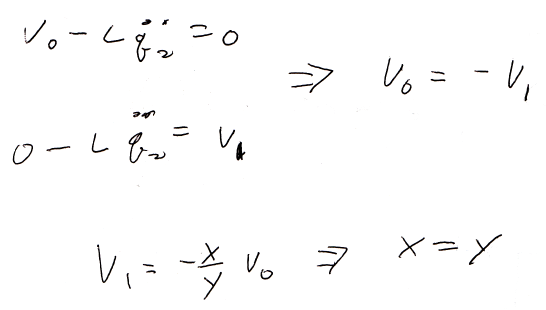 V₀ − L q̈₂ = 0
⇒ V₀ = − V₁
0 − L q̈₂ = V₁
V₁ = −x/y V₀ ⇒ x = y